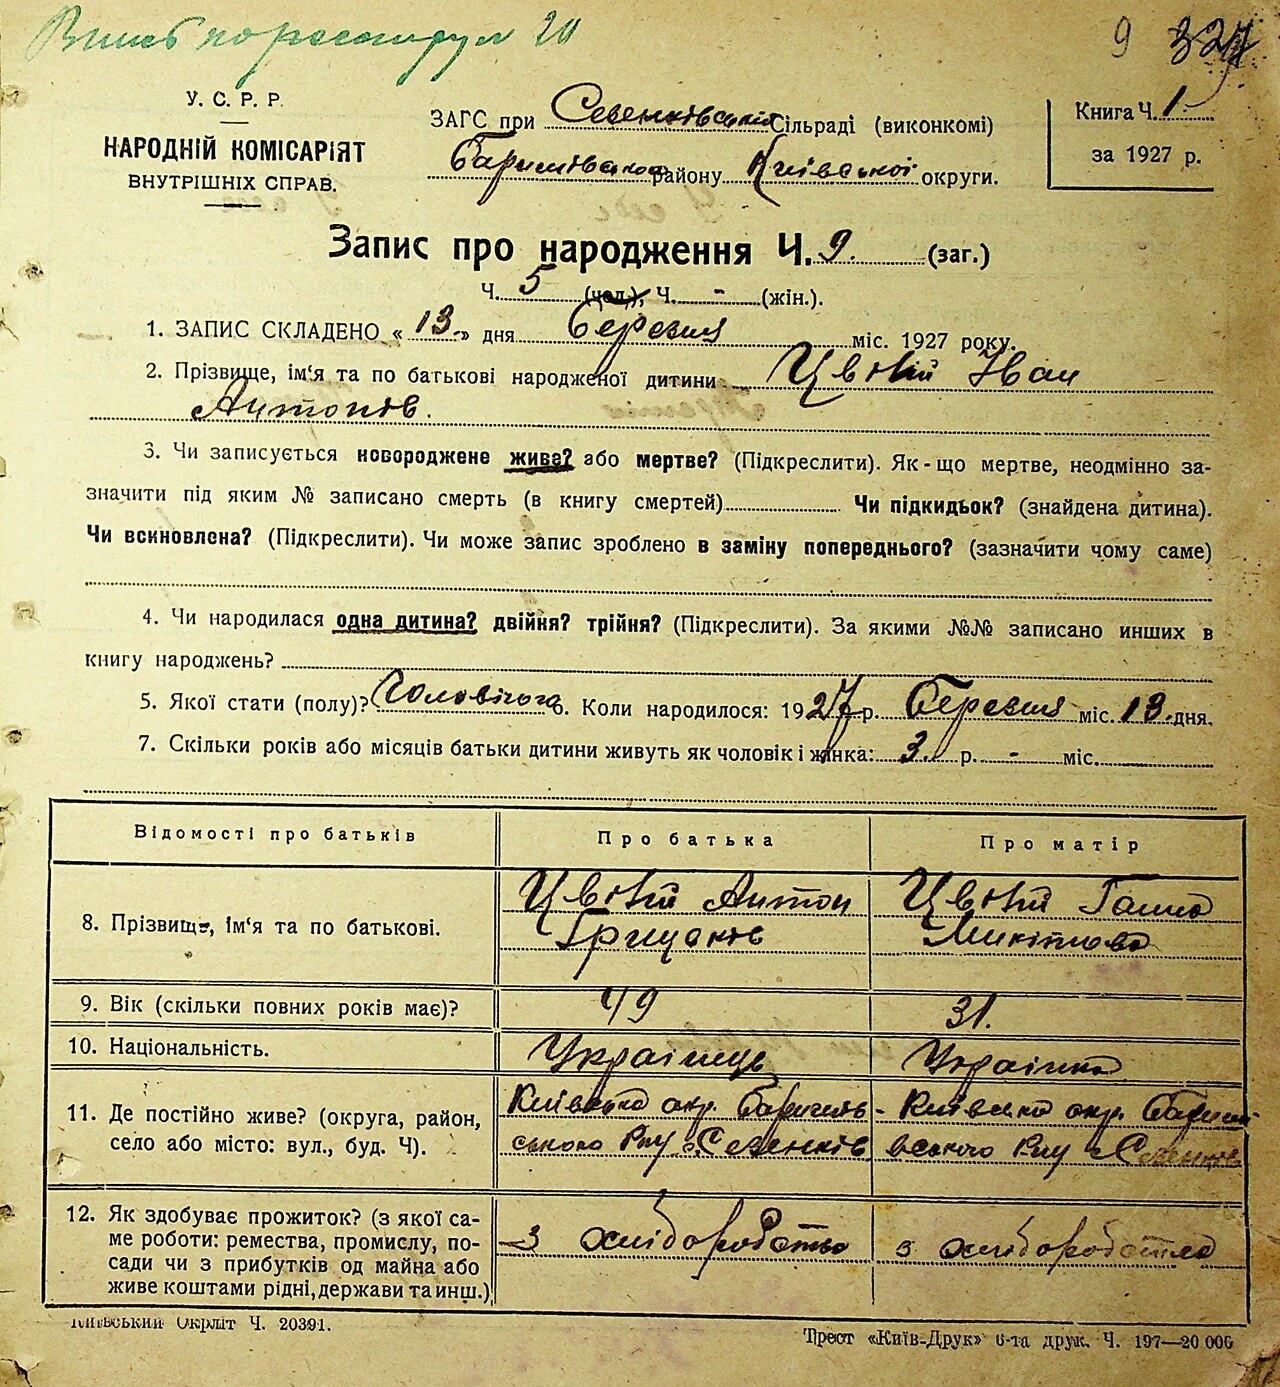 9 327
У. С. Р. Р.
НАРОДНІЙ КОМІСАРІЯТ
ВНУТРІШНІХ СПРАВ.
ЗАГС при Севенківській Сільраді (виконкомі)
Баришівського району Київської округи.
Книга Ч. 1
за 1927 р.
Запис про народження Ч. 9. (заг.)
Ч. 5 (чол.), Ч. - (жін.).
1. ЗАПИС СКЛАДЕНО « 13 » дня Березня міс. 1927 року.
2. Прізвище, ім'я та по батькові народженої дитини Цвітій Іван
Антонів.
3. Чи записується новороджене живе? або мертве? (Підкреслити). Як-що мертве, неодмінно за-
значити під яким № записано смерть (в книгу смертей) Чи підкидьок? (знайдена дитина).
Чи всиновлена? (Підкреслити). Чи може запис зроблено в заміну попереднього? (зазначити чому саме)
4. Чи народилася одна дитина? двійня? трійня? (Підкреслити). За якими №№ записано инших в
книгу народжень?
5. Якої стати (полу)? Чоловічого 6. Коли народилося: 1927 р. Березня міс. 13 дня.
7. Скільки років або місяців батьки дитини живуть як чоловік і жінка: 3. р. - міс.
Відомості про батьків Про батька Про матір
8. Прізвище, ім'я та по батькові.
Цвітій Антон
Грицьків
Цвітій Ганна
Микітова
9. Вік (скільки повних років має)? 49 31.
10. Національність. Українець Українка
11. Де постійно живе? (округа, район,
село або місто: вул., буд. Ч).
Київська окр. Баришів-
ського Р-ну с. Севенків
Київська окр. Бариші
вського Р-ну с. Севенків
12. Як здобуває прожиток? (з якої са-
ме роботи: ремества, промислу, по-
сади чи з прибутків од майна або
живе коштами рідні, держави та инш.)
з хліборобства
з хліборобства
Київський Окрліт Ч. 20391.
Трест «Київ-Друк» 6-та друк. Ч. 197—20 000